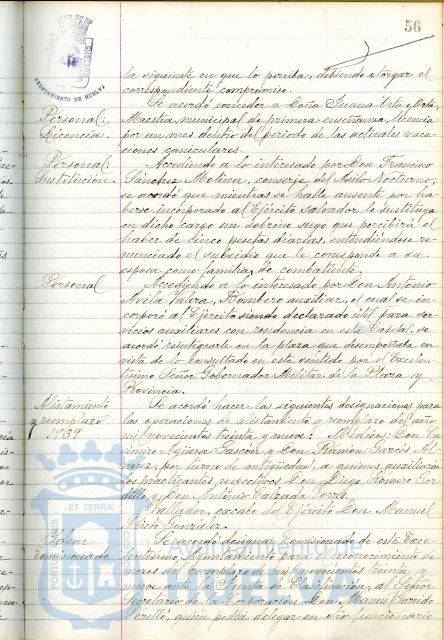 56
AYUNTAMIENTO DE HUELVA
la siguiente en que lo perciba, debiendo otorgar el
correspondiente compromiso.
Personal:
Licencia.
Se acordó conceder a Doña Juana Orta y Orta,
Maestra municipal de primera enseñanza, licencia
por un mes dentro del periodo de las actuales vaca-
ciones caniculares.
Personal:
Sustitución.
Accediendo a lo interesado por Don Francisco
Sánchez Molina, conserje del Asilo Nocturno,
se acordó que mientras se halle ausente por ha-
berse incorporado al Ejército Salvador le sustituya
en dicho cargo un sobrino suyo que percibirá el
haber de cinco pesetas diarias, entendiéndose re-
nunciado el subsidio que le corresponde a su
esposa como familiar de combatiente.
Personal
Accediendo a lo interesado por Don Antonio
Avila Valera, Bombero auxiliar, el cual se in-
corporó al Ejército siendo declarado útil para ser-
vicios auxiliares con residencia en esta Capital, se
acordó reintegrarle en la plaza que desempeñaba en
vista de lo consultado en este sentido por el Excelen-
tísimo Señor Gobernador Militar de la Plaza y
Provincia.
Alistamiento
y reemplazo
1939
Se acordó hacer las siguientes designaciones para
las operaciones de alistamiento y reemplazo del año
mil novecientos treinta y nueve: Médicos: Don Ca-
simiro Agüera Gascón y Don Ramón Garcés
por turno de antigüedad, a quienes auxiliarán
los practicantes respectivos Don Diego Romero
y Don Antonio Calzada
Tallador, excabo del Ejército Don Manuel
González.
Idem
Comisionado
Se acordó designar Comisionado de este Exce-
lentísimo Ayuntamiento para el reconocimiento de
mozos del reemplazo de mil novecientos treinta y
nueve ante la Junta de Clasificación, al Señor
Secretario de la Corporación Don Manuel Garrido
Perelló, quién podrá delegar en otro funcionario
PORTUS MARIS
ET TERRAE
CUSTODIA